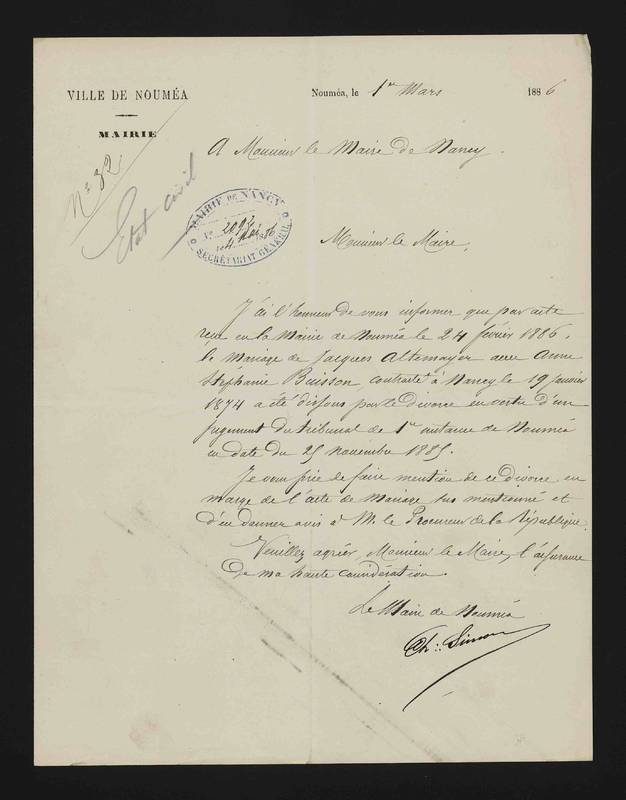 VILLE DE NOUMÉA
MAIRIE
Nouméa, le 1er Mars 1886
No 32
Etat civil
A Monsieur le Maire de Nancy.
MAIRIE DE NANCY
No 2093
4 Mai 1886
SECRÉTARIAT GÉNÉRAL
Monsieur le Maire,
J'ai l'honneur de vous informer que par acte
reçu en la Mairie de Nouméa le 24 février 1886,
le Mariage de Jacques Altemayer avec Anne
Stéphanie Buisson, contracté à Nancy le 19 janvier
1874 a été dissous par le divorce en vertu d'un
jugement du tribunal de 1re instance de Nouméa
en date du 25 novembre 1885.
Je vous prie de faire mention de ce divorce en
marge de l'acte de Mariage sus mentionné et
d'en donner avis à M. le Procureur de la République.
Veuillez agréer, Monsieur le Maire, l'assurance
de ma haute considération.
Le Maire de Nouméa
Ch: Simon